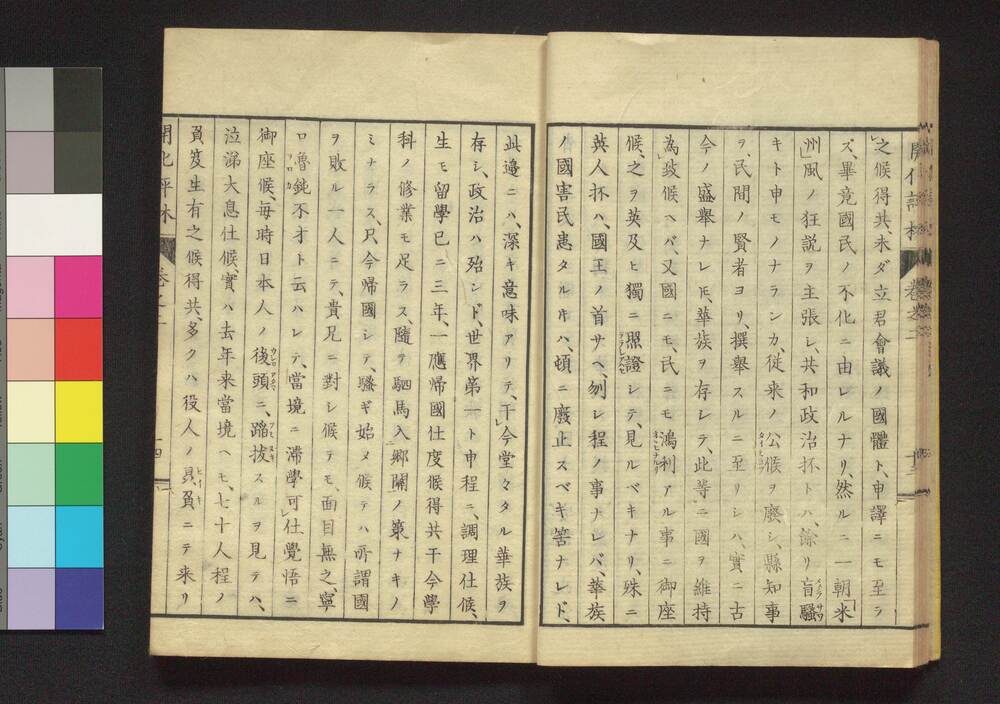 之候得共、未ダ立君會議ノ國體ト、申譯ニモ至ラ
ズ、畢竟國民ノ不化ニ由レルナリ、然ルニ一朝「米
州」風ノ狂説ヲ主張シ、共和政治抔トハ、餘リ盲騒
キト申モノナランカ、従来ノ公候ヲ廢シ、縣知事
ヲ、民間ノ賢者ヨリ、撰舉スルニ至リシハ、實ニ古
今ノ盛舉ナレ𪜈、華族ヲ存シテ、此等ニ國ヲ維持
為致候ヘバ、又國ニモ、民ニモ鴻利アル事ニ御座
候、之ヲ英及ヒ獨ニ照證シテ、見ルベキナリ、殊ニ
英人抔ハ、國王ノ首サヘ、刎レ程ノ事ナレバ、華族
ノ國害民患タルキハ、頓ニ廢止スベキ筈ナレド、
此邉ニハ、深キ意味アリテ、于今堂々タル華族ヲ
存シ、政治ハ殆ンド、世界第一ト申程ニ、調理仕候、
生モ留學已ニ三年、一應帰國仕度候得共于今學
科ノ修業モ足ラス、隨テ駟馬入郷關ノ策ナキノ
ミナラス、只今帰國シテ、騒ギ始メ候テハ所謂國
ヲ敗ル一人ニテ、貴兄ニ對シ候テモ、面目無之、寧
ロ魯鈍不才ト云ハレテ、當境ニ滞學可仕覺悟ニ
御座候、毎時日本人ノ後頭ニ、踏抜スルヲ見テハ、
泣涕大息仕候、實ハ去年来當境ヘモ、七十人程ノ
負笈生有之候得共、多クハ役人ノ贔負ニテ来リ
開化評林
卷之二